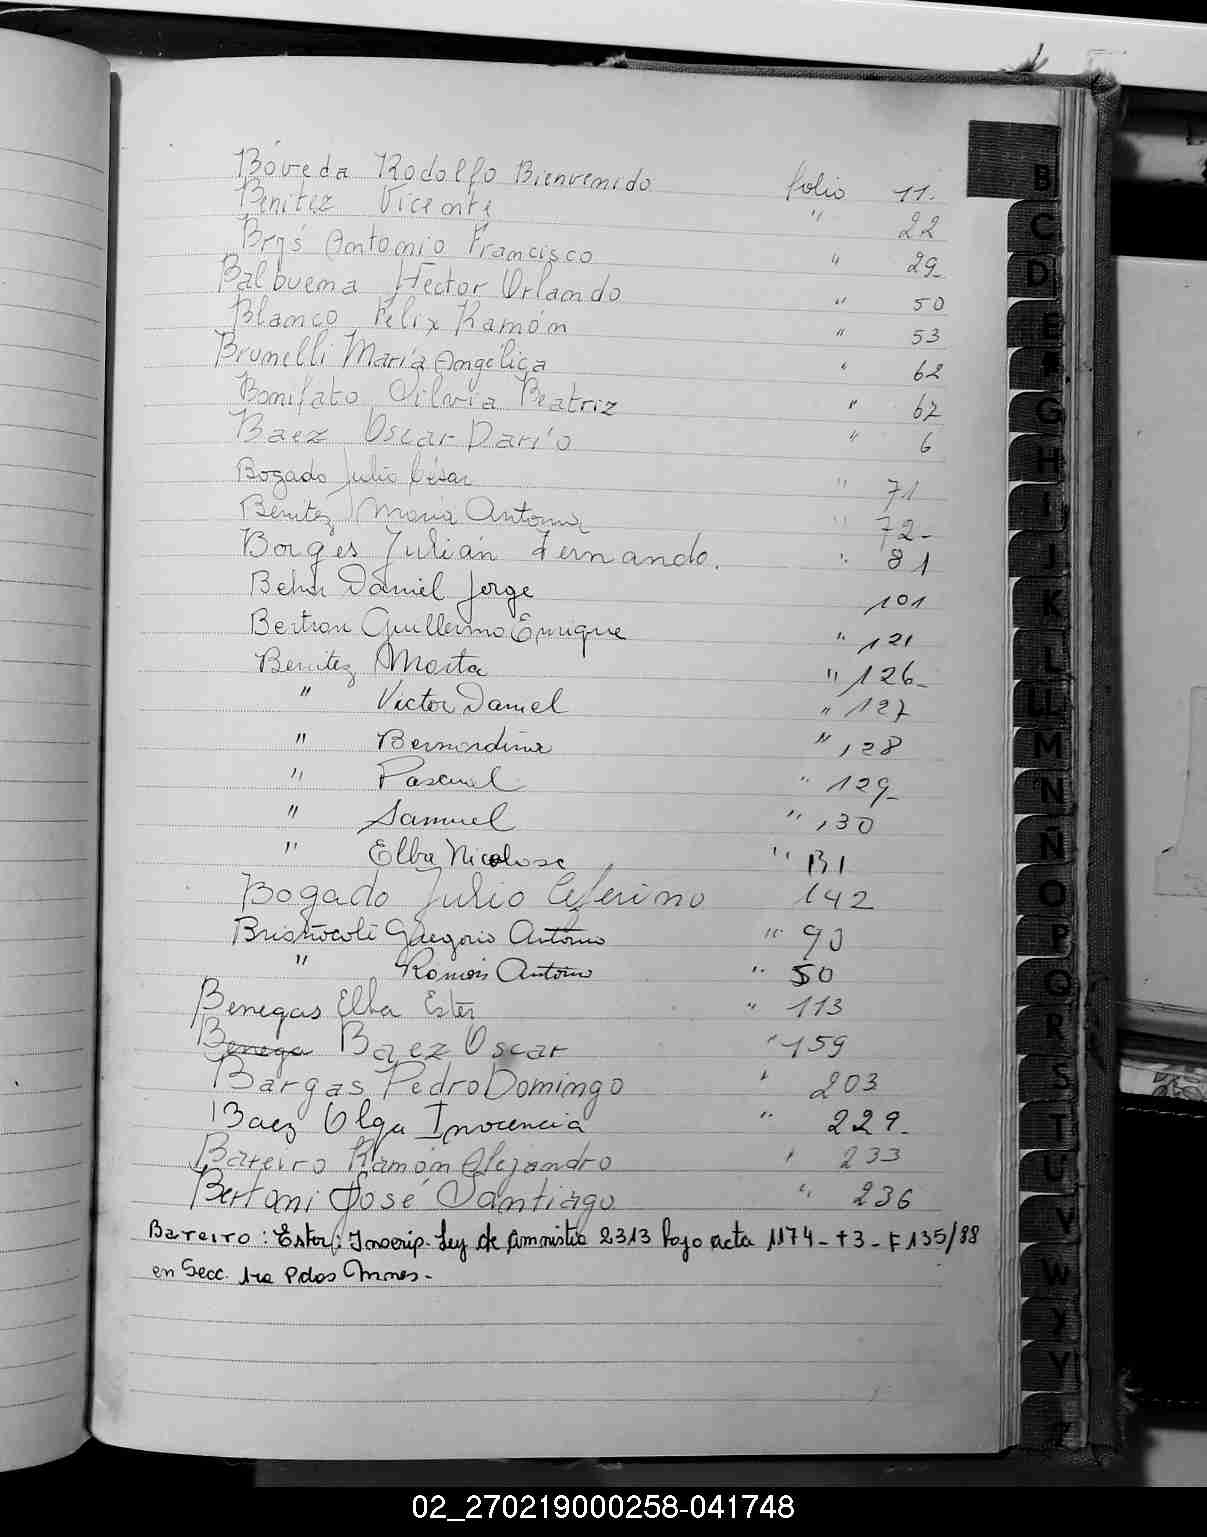 Bóveda Rodolfo Bienvenido folio 11.
Benitez Vicente " 22
Brys Antonio Francisco " 29_
Balbuena Hector Orlando " 50
Blanco Felix Ramón " 53
Brunelli María Angélica " 62
Bonifato Silvia Beatriz " 62
Baez Oscar Darío " 6
Bogado Julio César " 71
Benitez María Antonia " 72_
Borges Julián Fernando. " 81
Daniel Jorge 101
Bertron Guillermo Enrique " 121
Benitez Marta " 126_
" Victor Daniel " 127
" Bernardina " 128
" Pascual " 129_
" Samuel " 130
" Elba " 131
Bogado Julio Ceferino 142
Gregorio Antonio " 90
" Ramón Antonio " 50
Benegas Elba Ester " 113
Benega Baez Oscar " 159
Bargas Pedro Domingo " 203
Baez Olga Inocencia " 229_
Bareiro Ramón Alejandro " 233
Bertoni José Santiago " 236
Bareiro: Ester: Inscrip. Ley de Amnistia 2313 bajo acta 1174 - t3 - F135/88
en Secc. 1ra Pdas
B
C
D
E
F
G
H
I
J
K
L
LL
M
N
Ñ
O
P
Q
R
S
T
U
V
W
Y
Z
02_270219000258-041748